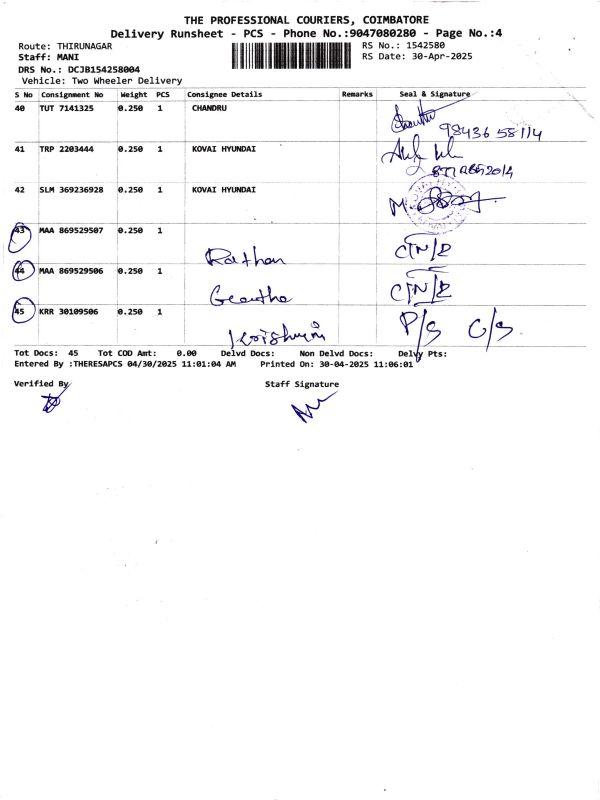 THE PROFESSIONAL COURIERS, COIMBATORE
Delivery Runsheet - PCS - Phone No.:9047080280 - Page No.:4
Route: THIRUNAGAR RS No.: 1542580
Staff: MANI RS Date: 30-Apr-2025
DRS No.: DCJB154258004
Vehicle: Two Wheeler Delivery
S No Consignment No Weight PCS Consignee Details Remarks Seal & Signature
40 TUT 7141325 0.250 1 CHANDRU
98436 58114
41 TRP 2203444 0.250 1 KOVAI HYUNDAI
42 SLM 369236928 0.250 1 KOVAI HYUNDAI
43 MAA 869529507 0.250 1
Rathan C/N/R
44 MAA 869529506 0.250 1
Geantha C/N/R
45 KRR 30109506 0.250 1
P/S C/S
Tot Docs: 45 Tot COD Amt: 0.00 Delvd Docs: Non Delvd Docs: Delvy Pts:
Entered By :THERESAPCS 04/30/2025 11:01:04 AM Printed On: 30-04-2025 11:06:01
Verified By Staff Signature